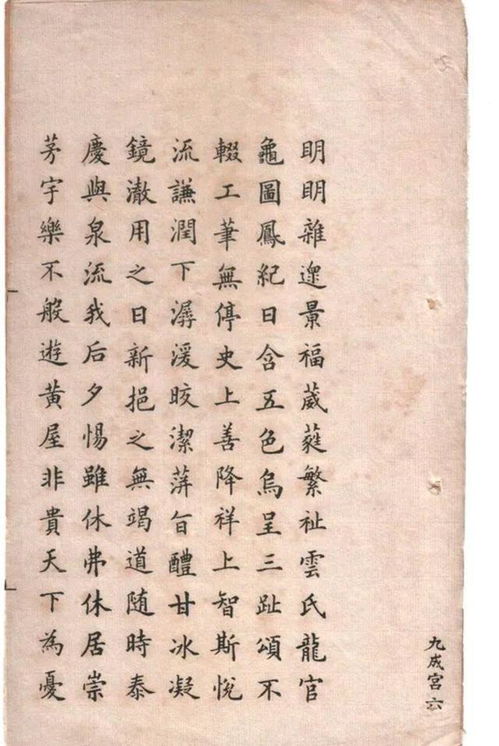 明明雜遝景福葳蕤繁祉雲氏龍官
龜圖鳳紀日含五色烏呈三趾頌不
輟工筆無停史上善降祥上智斯悅
流謙潤下潺湲晈潔蓱旨醴甘冰凝
鏡澈用之日新挹之無竭道随時泰
慶與泉流我后夕惕雖休弗休居崇
茅宇樂不般遊黃屋非貴天下為憂
九成宮 六